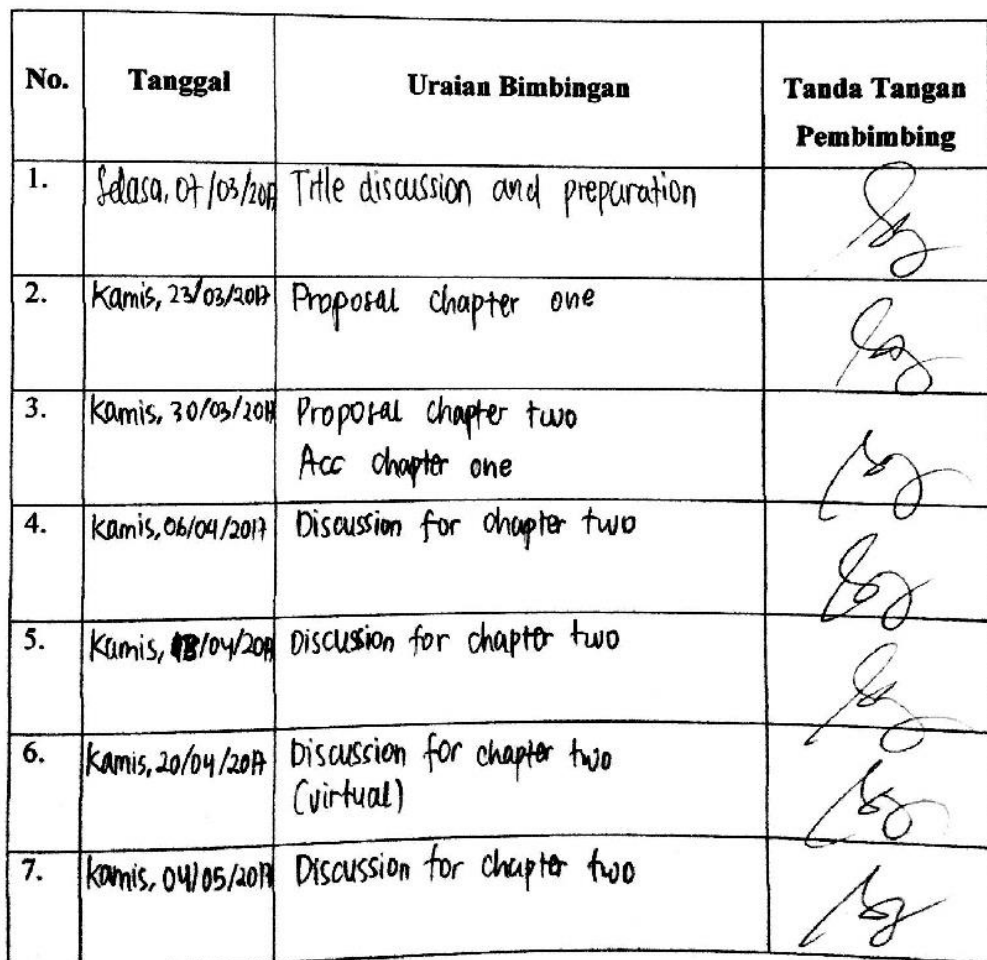 No. Tanggal Uraian Bimbingan Tanda Tangan
Pembimbing
1. Selasa, 07/03/2017 Title discussion and preparation
2. Kamis, 23/03/2017 Proposal chapter one
3. Kamis, 30/03/2017 Proposal chapter two
Acc chapter one
4. Kamis, 06/04/2017 Discussion for chapter two
5. Kamis, 13/04/2017 Discussion for chapter two
6. Kamis, 20/04/2017 Discussion for chapter two
(virtual)
7. Kamis, 04/05/2017 Discussion for chapter two